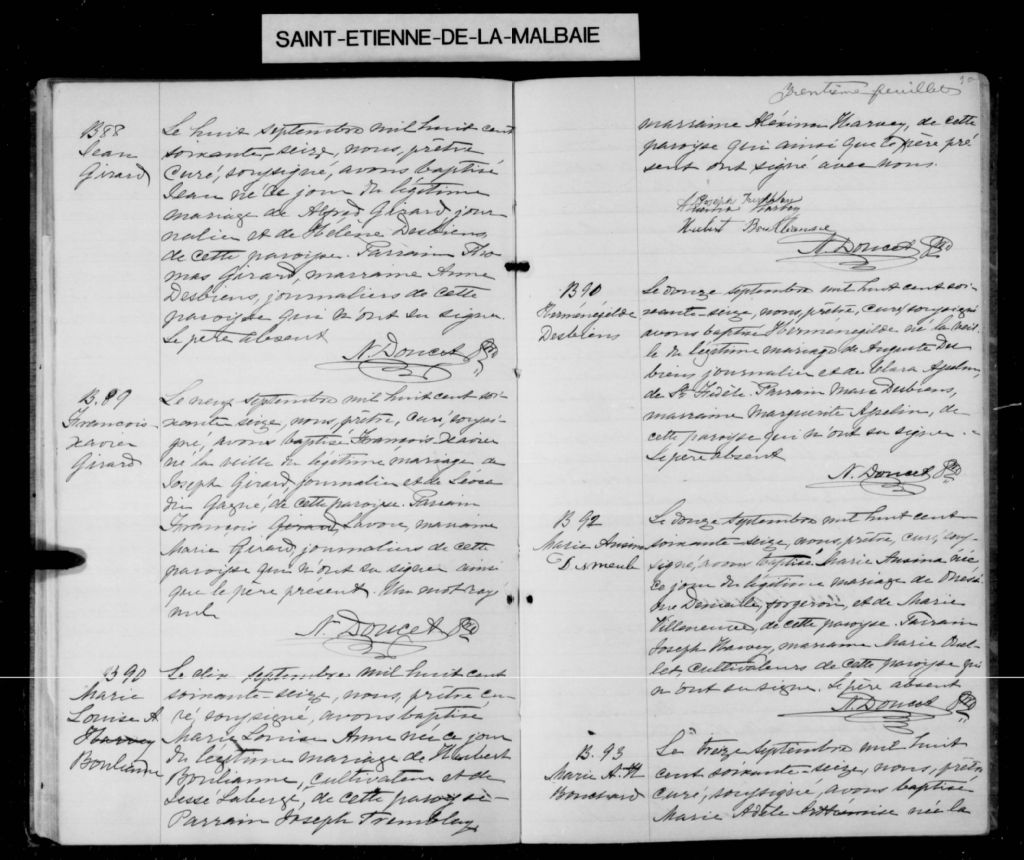 SAINT-ETIENNE-DE-LA-MALBAIE
B 88
Jean
Girard
Le huit septembre mil huit cent
soixante-seize, nous, prêtre
curé, soussigné, avons baptisé
Jean né ce jour du légitime
mariage de Alfred Girard, jour
nalier et de Hélène Desbiens,
de cette paroisse. Parrain Tho
mas Girard, marraine Anne
Desbiens, journaliers de cette
paroisse qui n'ont su signer.
Le père absent
N. Doucet Ptre
B. 89
François
Xavier
Girard
Le neuf septembre mil huit cent soi-
xante seize, nous, prêtre, curé, soussi-
gné, avons baptisé François Xavier
né la veille du légitime mariage de
Joseph Girard, journalier et de Léoca
die Gagné, de cette paroisse. Parrain
François Girard Lavoie, marraine
Marie Girard, journaliers de cette
paroisse qui n'ont su signer ainsi
que le père présent. Un mot ray
nul
N. Doucet Ptre
B 90
Marie
Louise A.
Harvey
Boulianne
Le dix septembre mil huit cent
soixante-seize, nous, prêtre cu-
ré, soussigné, avons baptisé
Marie Louise Anne née ce jour
du légitime mariage de Hubert
Boulianne, cultivateur et de
Laberge, de cette paroisse
Parrain Joseph Tremblay,
Trentième feuillet
30
marraine Aléxina Harvey, de cette
paroisse qui ainsi que le père pré
sent ont signé avec nous.
Joseph Tremblay
Harvey
Hubert Boulianne
N. Doucet Ptre
B 90
Herménégilde
Desbiens
Le douze septembre mil huit cent soi-
xante-seize, nous, prêtre, curé, soussigné
avons baptisé Herménégilde né la veil
le du légitime mariage de Auguste Des
biens, journalier et de Clara
de St Fidèle. Parrain Marc Desbiens,
marraine Marguerite, de
cette paroisse qui n'ont su signer.
Le père absent
N. Doucet Ptre
B 92
Marie
Desmeule
Le douze septembre mil huit cent
soixante-seize, nous, prêtre, curé, sous
signé, avons baptisé Marie née
ce jour du légitime mariage de
Demeule, forgeron, et de Marie
Villeneuve, de cette paroisse. Parrain
Joseph Harvey, marraine Marie Ouel
let, cultivateurs de cette paroisse qui
n'ont su signer. Le père absent
N. Doucet Ptre
B. 93
Marie A. H
Bouchard
Le treize septembre mil huit
cent soixante-seize, nous, prêtre
curé, soussigné, avons baptisé
Marie Adèle née la